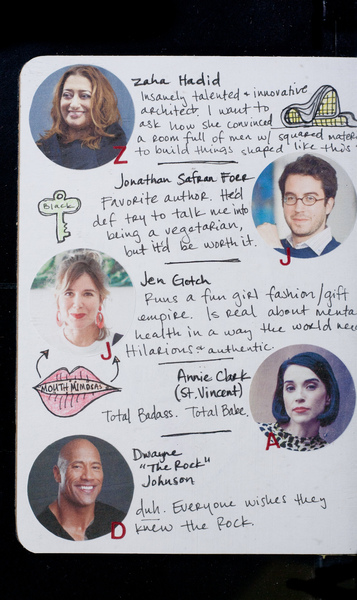 Zaha Hadid
Insanely talented + innovative
architect. I want to
ask how she convinced
a room full of men w/ squared
to build things shaped like this
Z
Jonathan Safran Foer
Favorite author. He'd
def try to talk me into
being a vegetarian,
but it'd be worth it.
Black
J
Jen Gotch
Runs a fun girl fashion/gift
empire. Is real about
health in a way the world
Hilarious + authentic.
J
MOUTH
Annie Clark
(St. Vincent)
Total Badass. Total Babe.
A
Dwayne
"The Rock"
Johnson
duh. Everyone wishes they
knew the Rock.
D